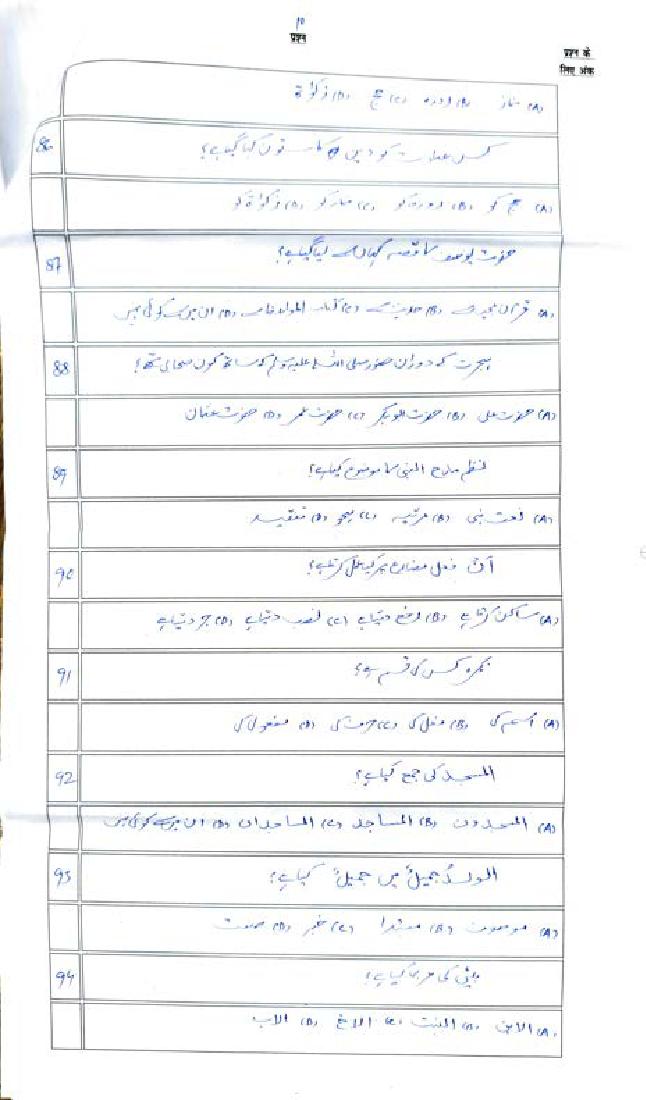 10
प्रश्न
प्रश्न के
लिए अंक
(A) نماز (B) روزہ (C) حج (D) زکوٰۃ
86 کس عبادت کو دین کا ستون کہا گیا ہے؟
(A) حج کو (B) روزہ کو (C) نماز کو (D) زکوٰۃ کو
87 حضرت یوسف کا قصہ کہاں سے لیا گیا ہے؟
(A) قرآن مجید سے (B) حدیث سے (C) (D) ان میں سے کوئی نہیں
88 ہجرت کے دوران حضور صلی اللہ علیہ وسلم کے ساتھ کون صحابی تھے؟
(A) حضرت علی (B) حضرت ابوبکر (C) حضرت عمر (D) حضرت عثمان
89 نظم مدح النبی کا موضوع کیا ہے؟
(A) نعت نبی (B) مرثیہ (C) ہجو (D) تنقید
90 أن فعل مضارع پر کیا عمل کرتا ہے؟
(A) ساکن کرتا ہے (B) رفع دیتا ہے (C) نصب دیتا ہے (D) جر دیتا ہے
91 نکرہ کس کی قسم ہے؟
(A) اسم کی (B) فعل کی (C) حرف کی (D) مفعول کی
92 المسجد کی جمع کیا ہے؟
(A) المسجدون (B) المساجد (C) الساجدان (D) ان میں سے کوئی نہیں
93 الولدُ جمیلٌ میں جمیلٌ کیا ہے؟
(A) موصوف (B) مبتدا (C) خبر (D) صفت
94 بیٹی کی عربی کیا ہے؟
(A) الابن (B) البنت (C) الاخ (D) الاب